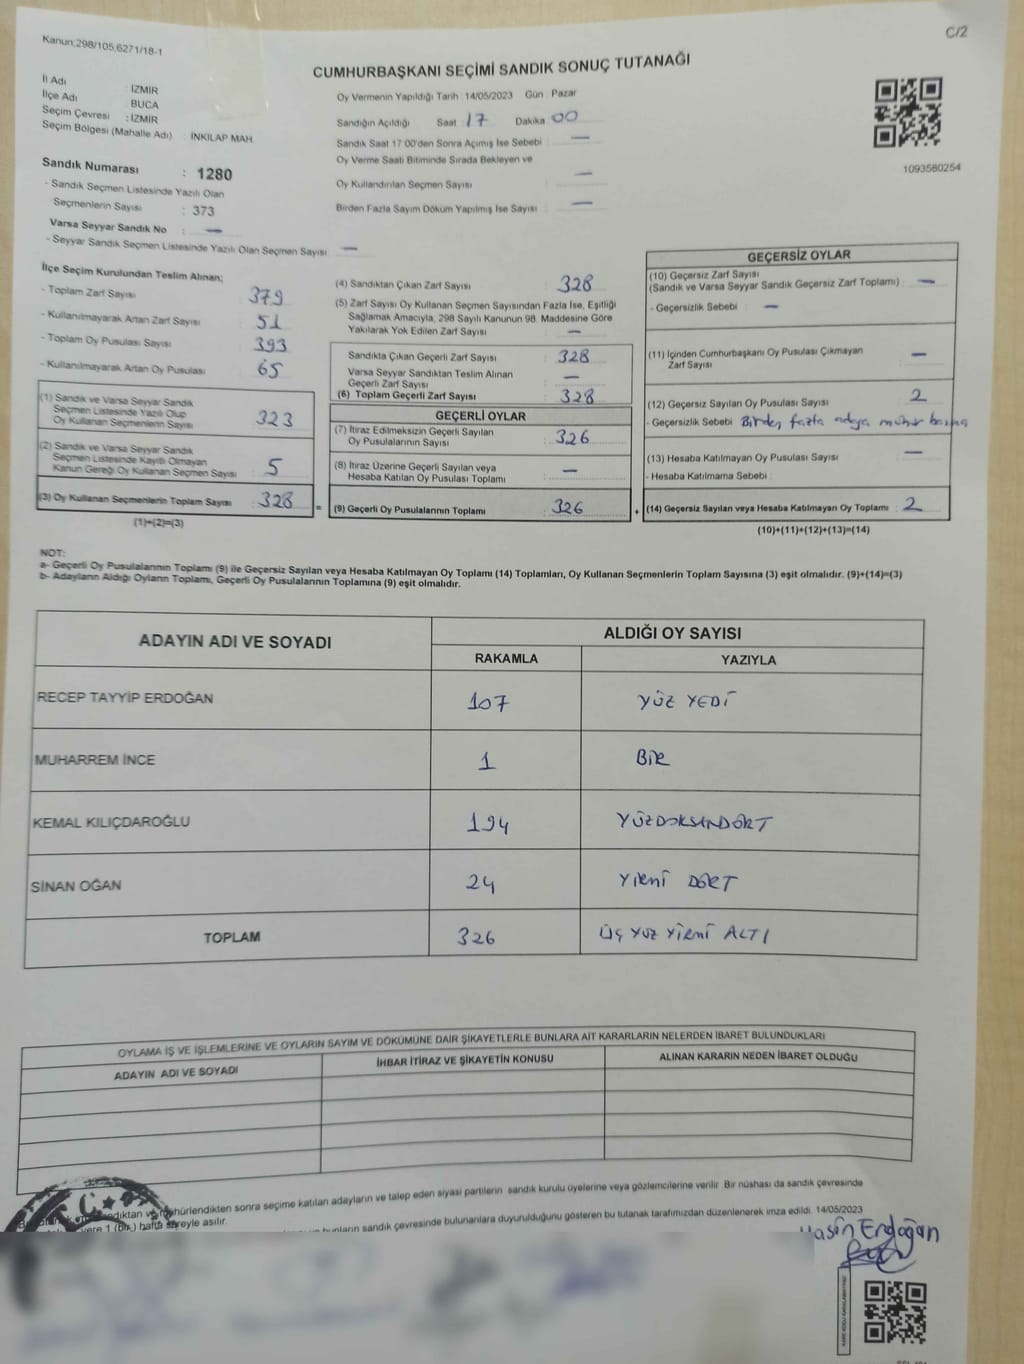 Kanun,298/105,6271/18-1
C/2
CUMHURBAŞKANI SEÇİMİ SANDIK SONUÇ TUTANAĞI
İl Adı : İZMİR
İlçe Adı : BUCA
Seçim Çevresi : İZMİR
Seçim Bölgesi (Mahalle Adı) : İNKILAP MAH
Oy Vermenin Yapıldığı Tarih 14/05/2023 Gün : Pazar
Sandığın Açıldığı Saat 17 Dakika 00
Sandık Saat 17:00'den Sonra Açımış İse Sebebi : —
Oy Verme Saati Bitiminde Sırada Bekleyen ve
Oy Kullandırılan Seçmen Sayısı —
Birden Fazla Sayım Döküm Yapılmış İse Sayısı : —
1093580254
Sandık Numarası : 1280
- Sandık Seçmen Listesinde Yazılı Olan
Seçmenlerin Sayısı : 373
Varsa Seyyar Sandık No : —
- Seyyar Sandık Seçmen Listesinde Yazılı Olan Seçmen Sayısı : —
İlçe Seçim Kurulundan Teslim Alınan;
- Toplam Zarf Sayısı : 379
- Kullanılmayarak Artan Zarf Sayısı : 51
- Toplam Oy Pusulası Sayısı : 393
- Kullanılmayarak Artan Oy Pusulası : 65
(1) Sandık ve Varsa Seyyar Sandık
Seçmen Listesinde Yazılı Olup
Oy Kullanan Seçmenlerin Sayısı : 323
(2) Sandık ve Varsa Seyyar Sandık
Seçmen Listesinde Kayıtlı Olmayan
Kanun Gereği Oy Kullanan Seçmen Sayısı : 5
(3) Oy Kullanan Seçmenlerin Toplam Sayısı : 328
(1)+(2)=(3)
(4) Sandıktan Çıkan Zarf Sayısı : 328
(5) Zarf Sayısı Oy Kullanan Seçmen Sayısından Fazla İse, Eşitliği
Sağlamak Amacıyla, 298 Sayılı Kanunun 98. Maddesine Göre
Yakılarak Yok Edilen Zarf Sayısı : —
Sandıkta Çıkan Geçerli Zarf Sayısı : 328
Varsa Seyyar Sandıktan Teslim Alınan
Geçerli Zarf Sayısı : —
(6) Toplam Geçerli Zarf Sayısı : 328
GEÇERLİ OYLAR
(7) İtiraz Edilmeksizin Geçerli Sayılan
Oy Pusulalarının Sayısı : 326
(8) İtiraz Üzerine Geçerli Sayılan veya
Hesaba Katılan Oy Pusulası Toplamı : —
(9) Geçerli Oy Pusulalarının Toplamı : 326
GEÇERSİZ OYLAR
(10) Geçersiz Zarf Sayısı
(Sandık ve Varsa Seyyar Sandık Geçersiz Zarf Toplamı) : —
- Geçersizlik Sebebi : —
(11) İçinden Cumhurbaşkanı Oy Pusulası Çıkmayan
Zarf Sayısı : —
(12) Geçersiz Sayılan Oy Pusulası Sayısı : 2
- Geçersizlik Sebebi Birden fazla adaya mühür basma
(13) Hesaba Katılmayan Oy Pusulası Sayısı : —
- Hesaba Katılmama Sebebi :
(14) Geçersiz Sayılan veya Hesaba Katılmayan Oy Toplamı : 2
(10)+(11)+(12)+(13)=(14)
NOT:
a- Geçerli Oy Pusulalarının Toplamı (9) ile Geçersiz Sayılan veya Hesaba Katılmayan Oy Toplamı (14) Toplamları, Oy Kullanan Seçmenlerin Toplam Sayısına (3) eşit olmalıdır. (9)+(14)=(3)
b- Adayların Aldığı Oyların Toplamı, Geçerli Oy Pusulalarının Toplamına (9) eşit olmalıdır.
ADAYIN ADI VE SOYADI
ALDIĞI OY SAYISI
RAKAMLA YAZIYLA
RECEP TAYYİP ERDOĞAN 107 YÜZ YEDİ
MUHARREM İNCE 1 BİR
KEMAL KILIÇDAROĞLU 194 YÜZDOKSANDÖRT
SİNAN OĞAN 24 YİRMİ DÖRT
TOPLAM 326 ÜÇ YÜZ YİRMİ ALTI
OYLAMA İŞ VE İŞLEMLERİNE VE OYLARIN SAYIM VE DÖKÜMÜNE DAİR ŞİKAYETLERLE BUNLARA AİT KARARLARIN NELERDEN İBARET BULUNDUKLARI
ADAYIN ADI VE SOYADI İHBAR İTİRAZ VE ŞİKAYETİN KONUSU ALINAN KARARIN NEDEN İBARET OLDUĞU
mühürlendikten sonra seçime katılan adayların ve talep eden siyasi partilerin sandık kurulu üyelerine veya gözlemcilerine verilir. Bir nüshası da sandık çevresinde
1 (bir) hafta süreyle asılır.
bunların sandık çevresinde bulunanlara duyurulduğunu gösteren bu tutanak tarafımızdan düzenlenerek imza edildi. 14/05/2023
Yasin Erdoğan